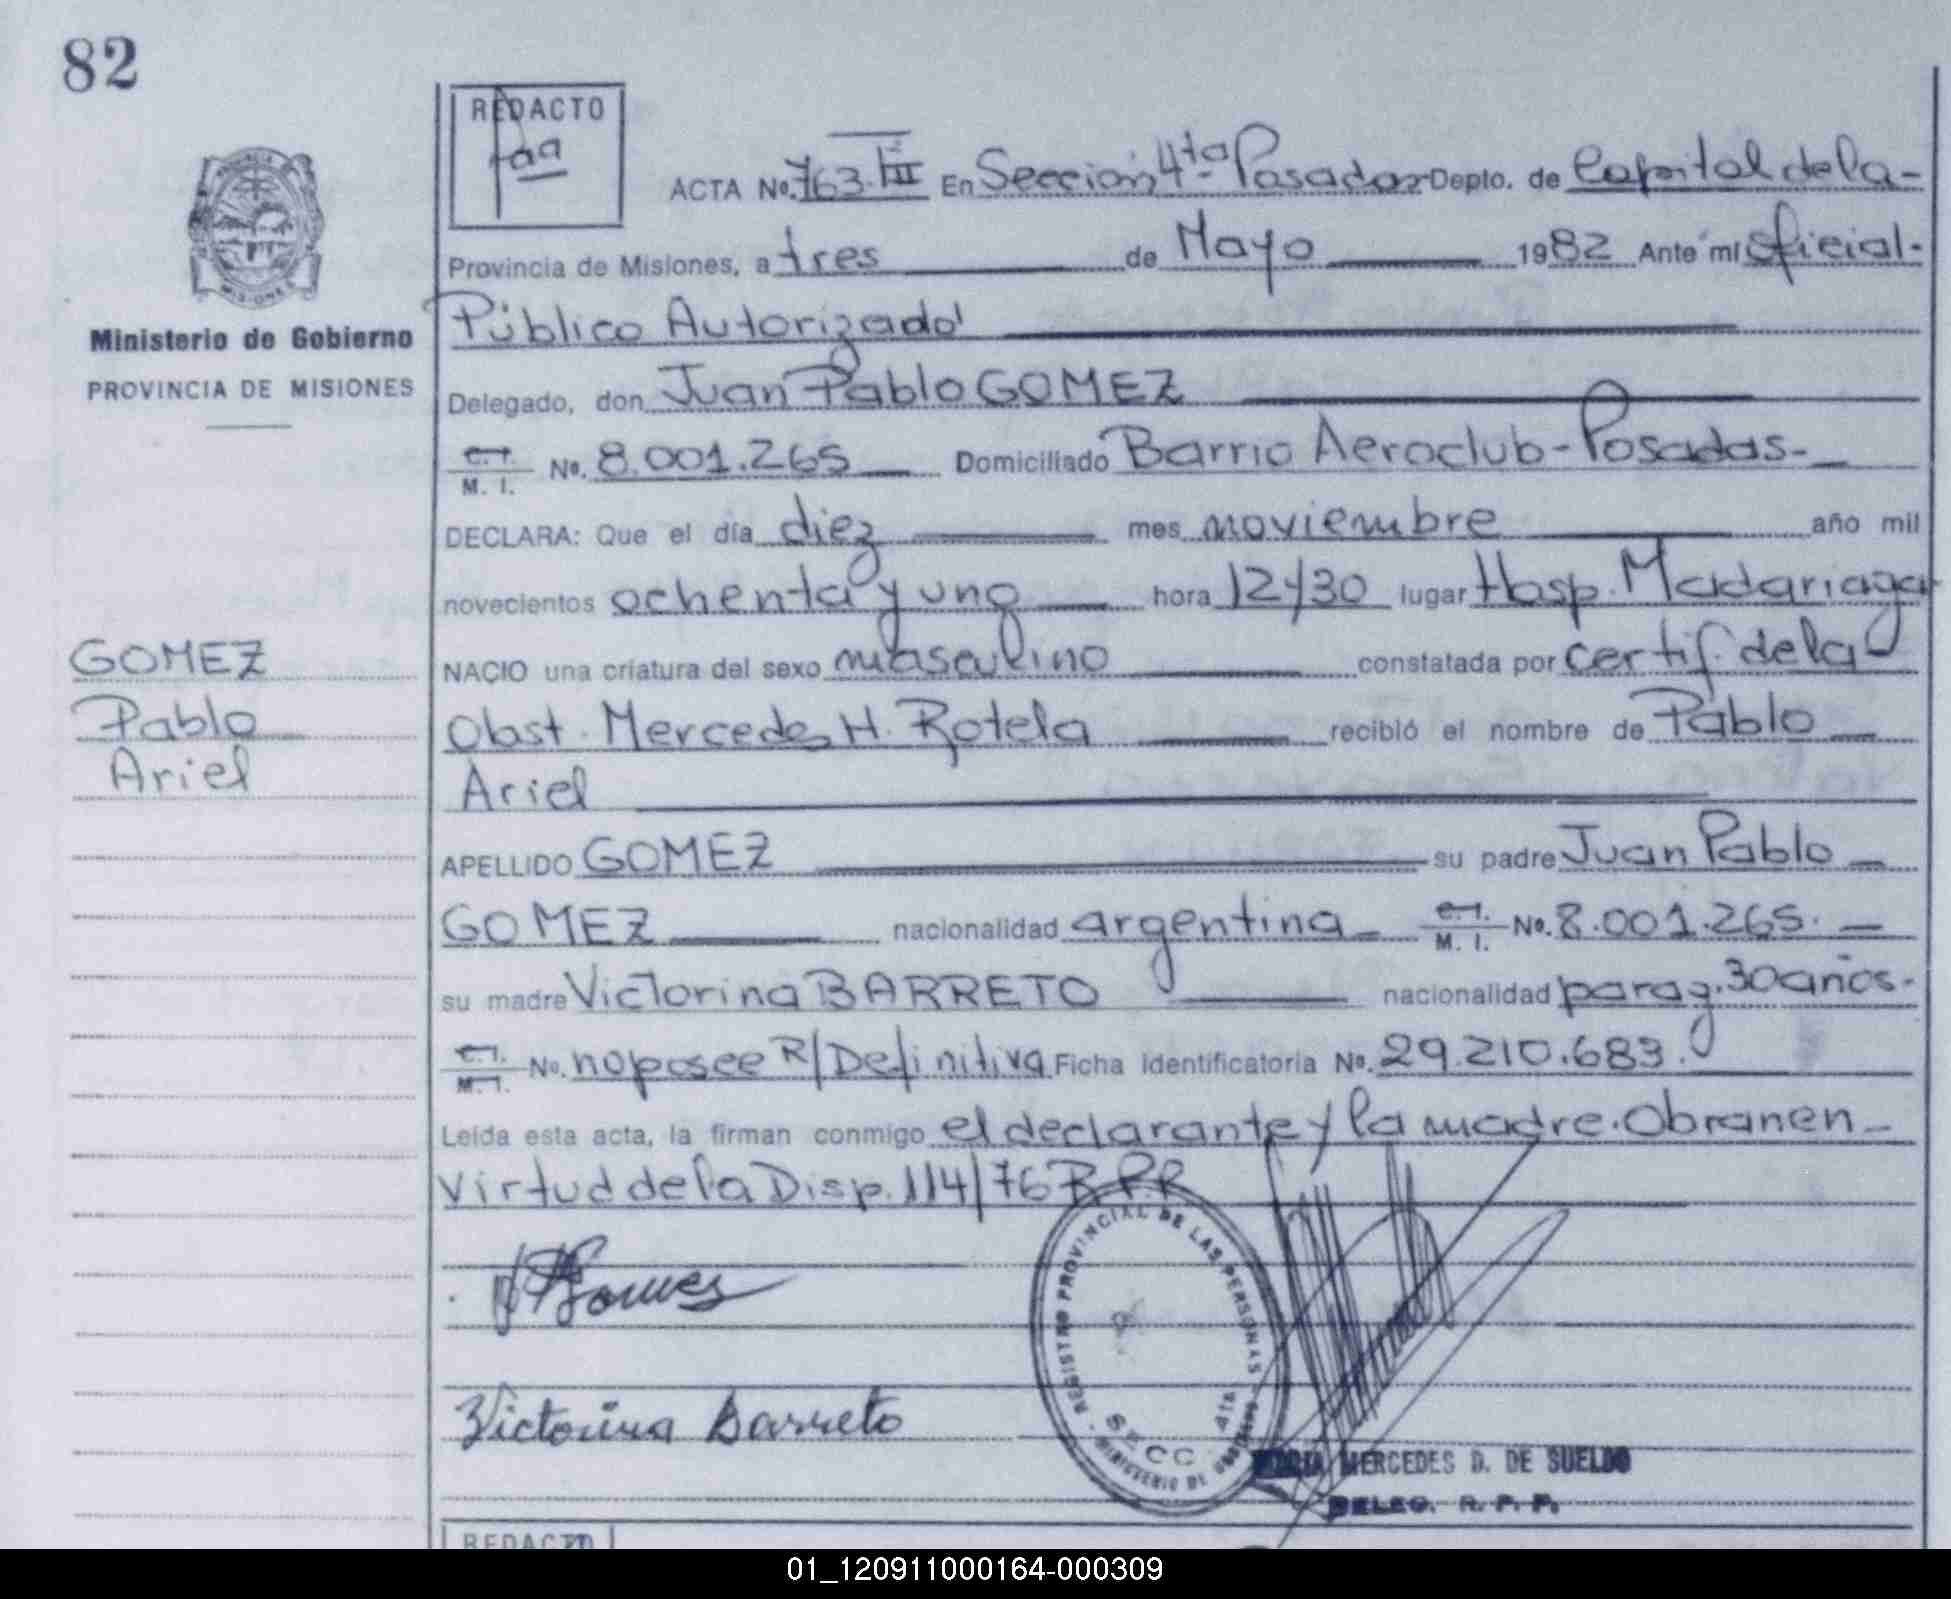 82
REDACTO
aa
ACTA No. 763. III En Sección 4ta Posadas Depto. de Capital de la-
Provincia de Misiones, a tres de Mayo 1982 Ante mí Oficial-
Público Autorizado
Delegado, don Juan Pablo GOMEZ
C.I. M. I. No. 8.001.265 Domiciliado Barrio Aeroclub-Posadas-
DECLARA: Que el día diez mes noviembre año mil
novecientos ochenta y uno hora 12y30 lugar Hosp. Madariaga
NACIO una criatura del sexo masculino constatada por certif. de la
Obst. Mercedes H. Rotela recibió el nombre de Pablo
Ariel
APELLIDO GOMEZ su padre Juan Pablo
GOMEZ nacionalidad argentina C.I. M. I. No. 8.001.265.
su madre Victorina BARRETO nacionalidad parag. 30 años.
C.I. M.I. No. no posee R/Definitiva Ficha Identificatoria No. 29.210.683.
Leída esta acta, la firman conmigo el declarante y la madre. Obran en
virtud de la Disp. 114/76 R.P.P.
Gomes
Victorina Barreto
REGISTRO PROVINCIAL DE LAS PERSONAS
SECC 4ta
MINISTERIO DE GOBIERNO
MERCEDES D. DE SUELDO
DELEG. R. P. P.
REDACTO
MISIONES
Ministerio de Gobierno
PROVINCIA DE MISIONES
GOMEZ
Pablo
Ariel
01_120911000164-000309